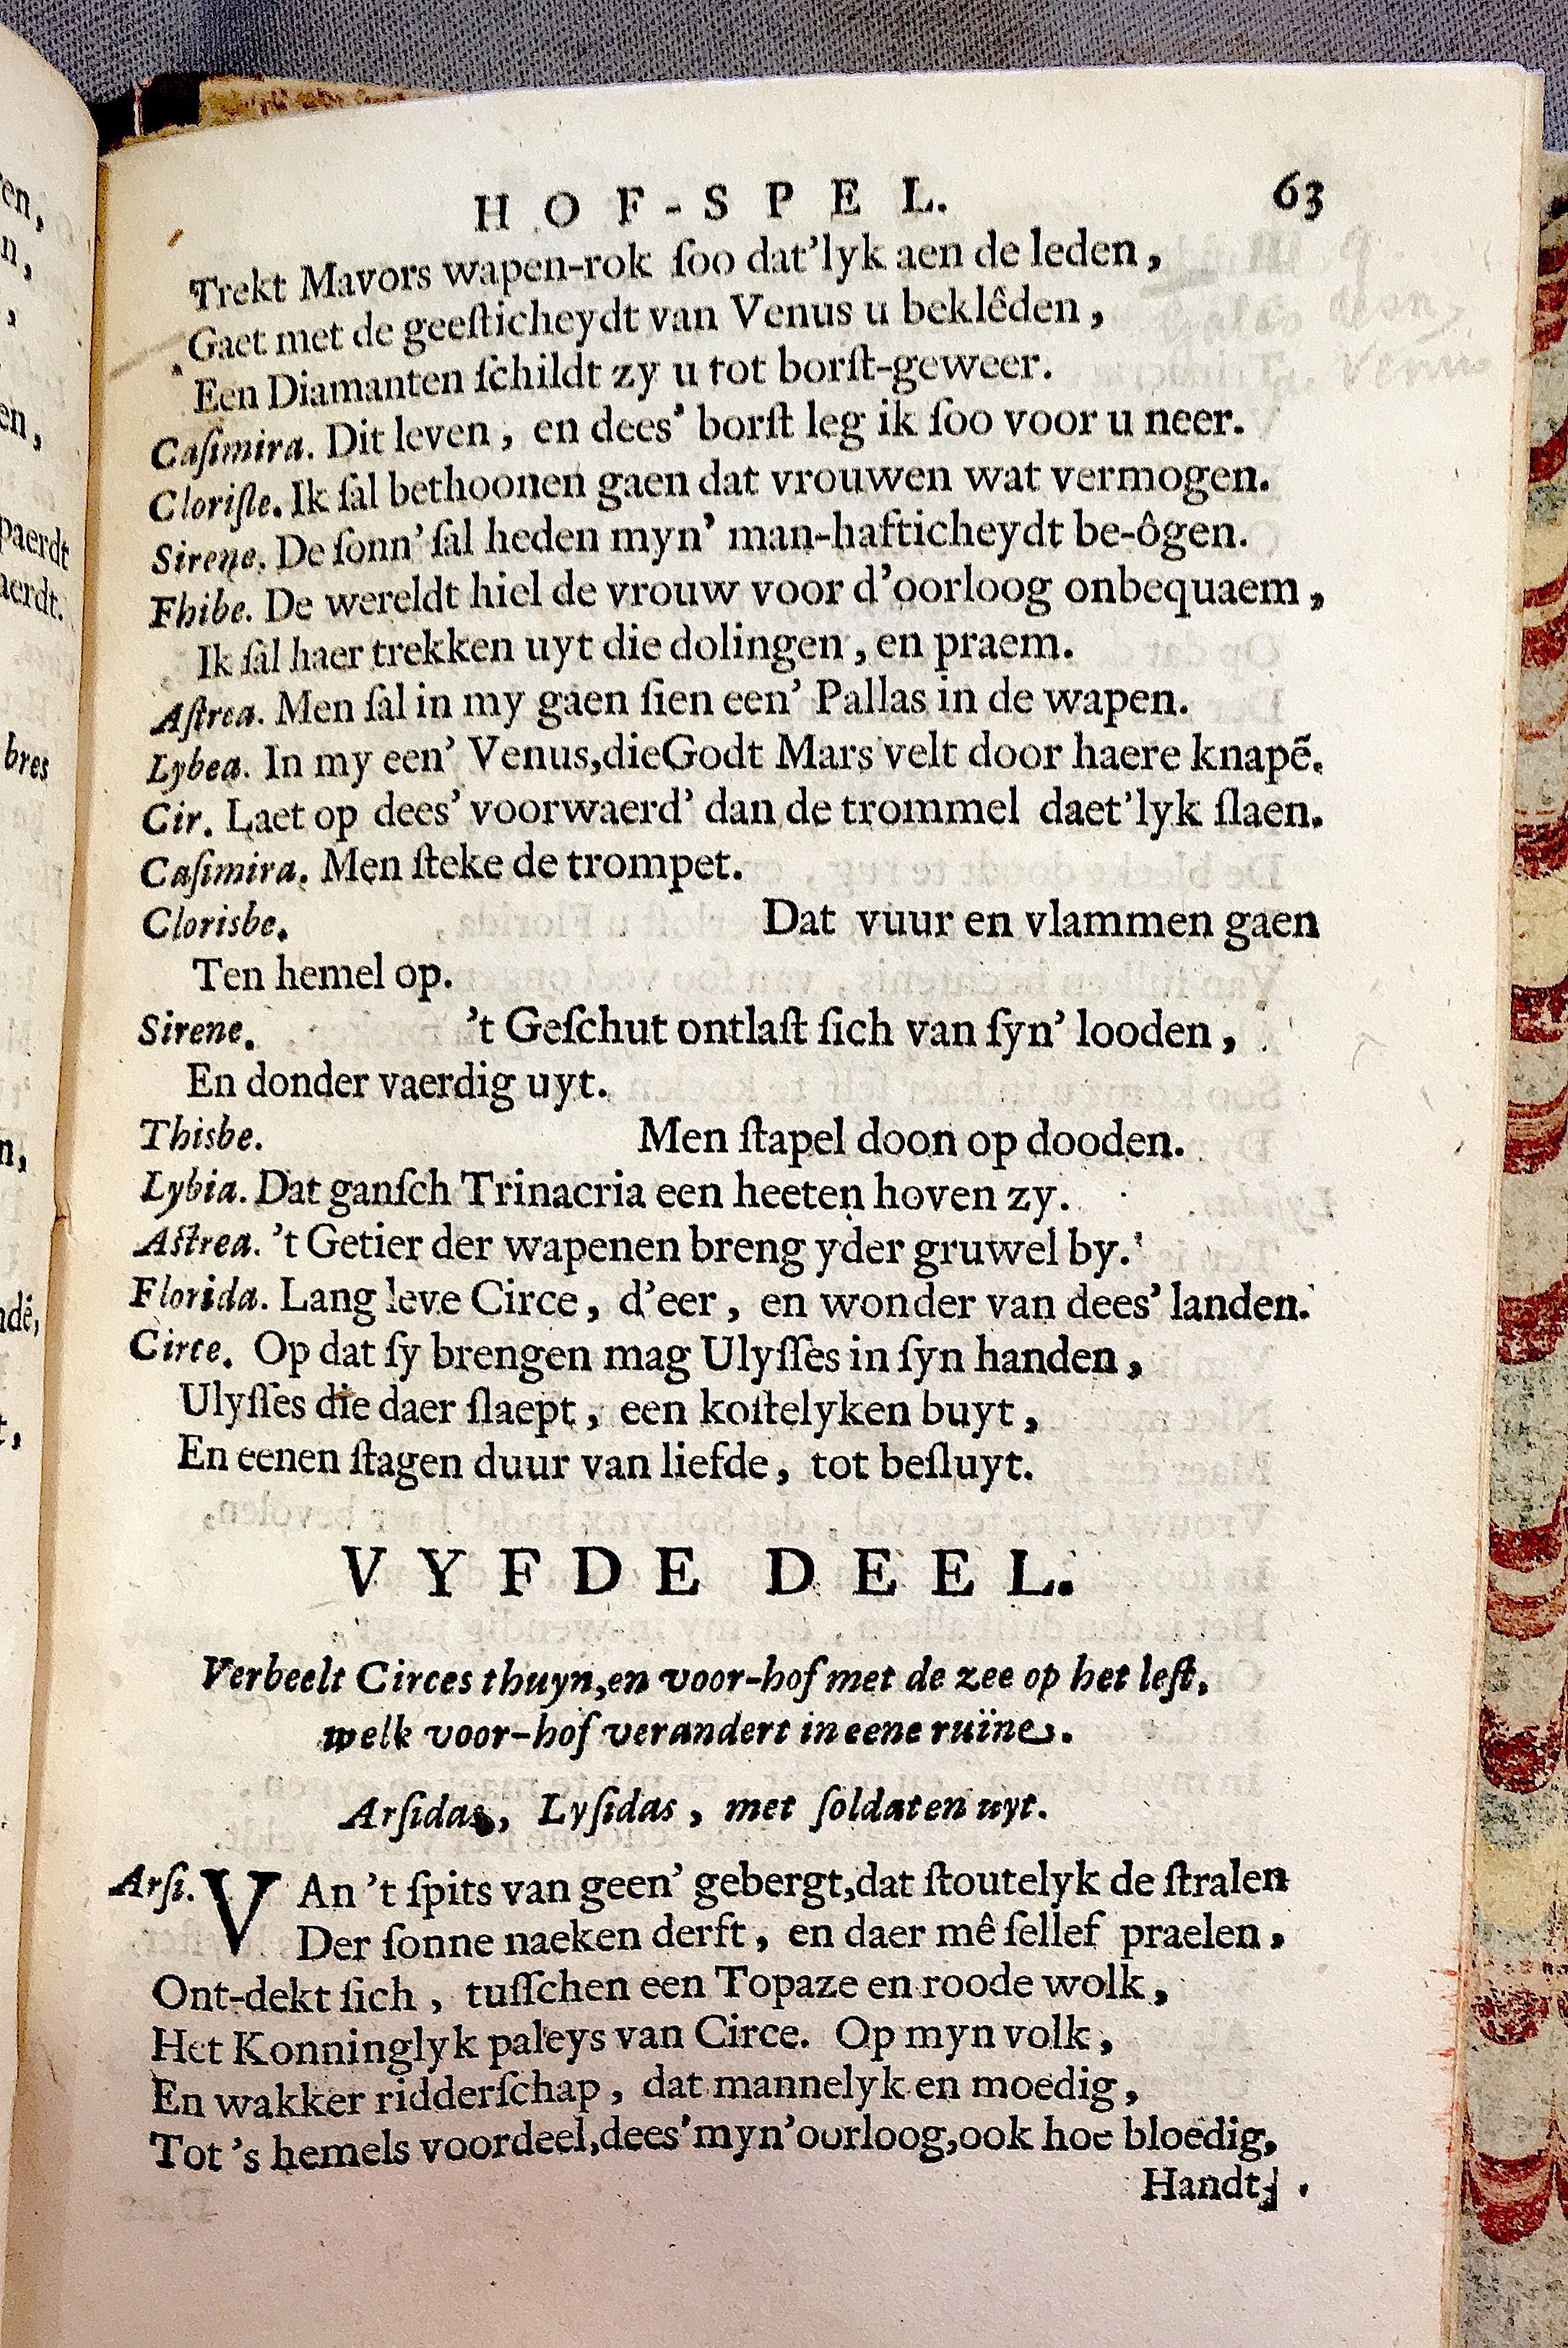 HOF-SPEL. 63
Trekt Mavors wapen-rok ſoo dat'lyk aen de leden,
Gaet met de geeſticheydt van Venus u beklêden,
Een Diamanten ſchildt zy u tot borſt-geweer.
Caſimira. Dit leven, en dees' borſt leg ik ſoo voor u neer.
Cloriſle. Ik ſal bethoonen gaen dat vrouwen wat vermogen.
Sirene. De ſonn' ſal heden myn' man-hafticheydt be-ôgen.
Fhibe. De wereldt hiel de vrouw voor d'oorloog onbequaem,
Ik ſal haer trekken uyt die dolingen, en praem.
Aſtrea. Men ſal in my gaen ſien een' Pallas in de wapen.
Lybea. In my een' Venus,dieGodt Mars velt door haere knapẽ.
Cir. Laet op dees' voorwaerd' dan de trommel daet'lyk ſlaen.
Caſimira. Men ſteke de trompet.
Clorisbe. Dat vuur en vlammen gaen
Ten hemel op.
Sirene. 't Geſchut ontlaſt ſich van ſyn' looden,
En donder vaerdig uyt.
Thisbe. Men ſtapel doon op dooden.
Lybia. Dat ganſch Trinacria een heeten hoven zy.
Aſtrea. 't Getier der wapenen breng yder gruwel by.
Florida. Lang leve Circe, d'eer, en wonder van dees' landen.
Circe. Op dat ſy brengen mag Ulyſſes in ſyn handen,
Ulyſſes die daer ſlaept, een koſtelyken buyt,
En eenen ſtagen duur van liefde, tot beſluyt.
VYFDE DEEL.
Verbeelt Circes thuyn,en voor-hof met de zee op het leſt,
welk voor-hof verandert in eene ruïne.
Arſidas, Lyſidas, met ſoldaten uyt.
Arſi. VAn 't ſpits van geen' gebergt,dat ſtoutelyk de ſtralen
Der ſonne naeken derft, en daer mê ſellef praelen,
Ont-dekt ſich, tuſſchen een Topaze en roode wolk,
Het Konninglyk paleys van Circe. Op myn volk,
En wakker ridderſchap, dat mannelyk en moedig,
Tot 's hemels voordeel,dees'myn'ourloog,ook hoe bloedig,
Handt